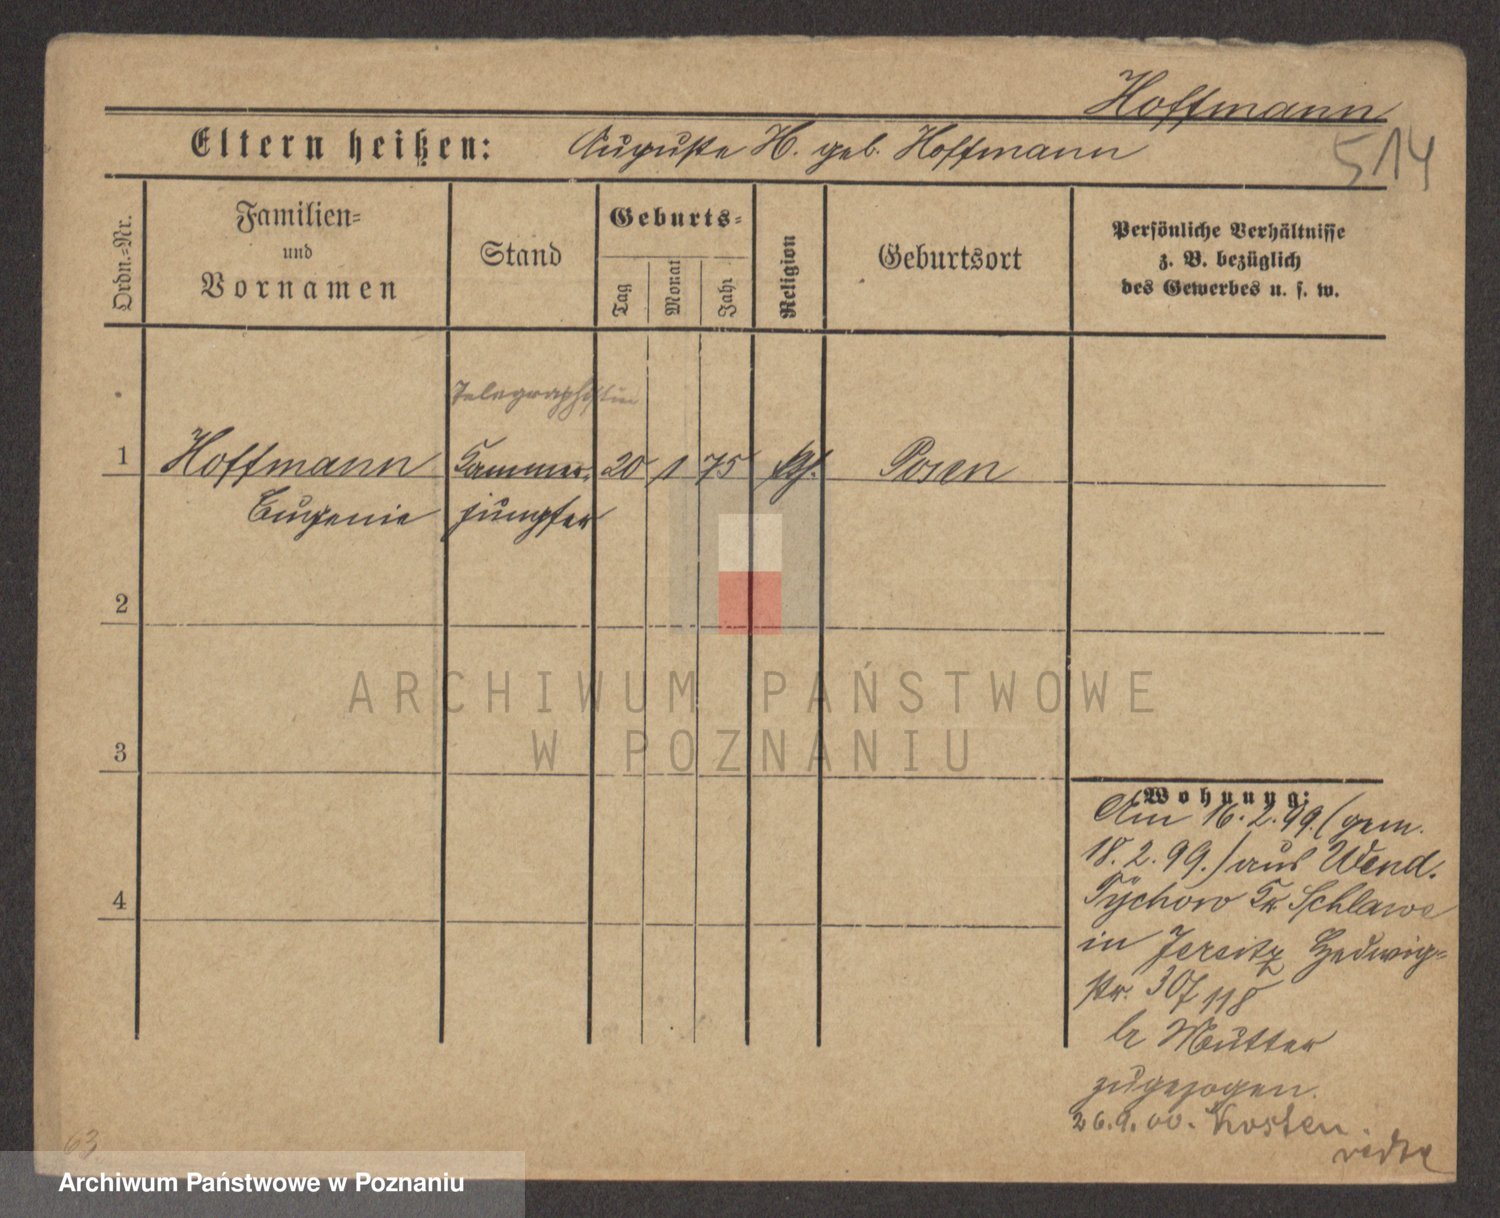 Hoffmann
514
Eltern heißen: Auguste H. geb. Hoffmann
Ordn.-Nr.
Familien-
und
Vornamen
Stand
Geburts-
Tag
Monat
Jahr
Religion
Geburtsort
Persönliche Verhältnisse
z. B. bezüglich
des Gewerbes u. s. w.
Telegraphistin
1 Hoffmann Kammer- 20 1 75 Posen
Eugenie jungfer
2
3
4
ARCHIWUM PAŃSTWOWE
W POZNANIU
Wohnung:
Am 16.2.99. (gem.
18.2.99.) aus Wend.
Tychow Kr. Schlawe
in Jersitz Hedwig-
str. 118
Mutter
zugezogen.
26.9.00. Kosten
63
Archiwum Państwowe w Poznaniu